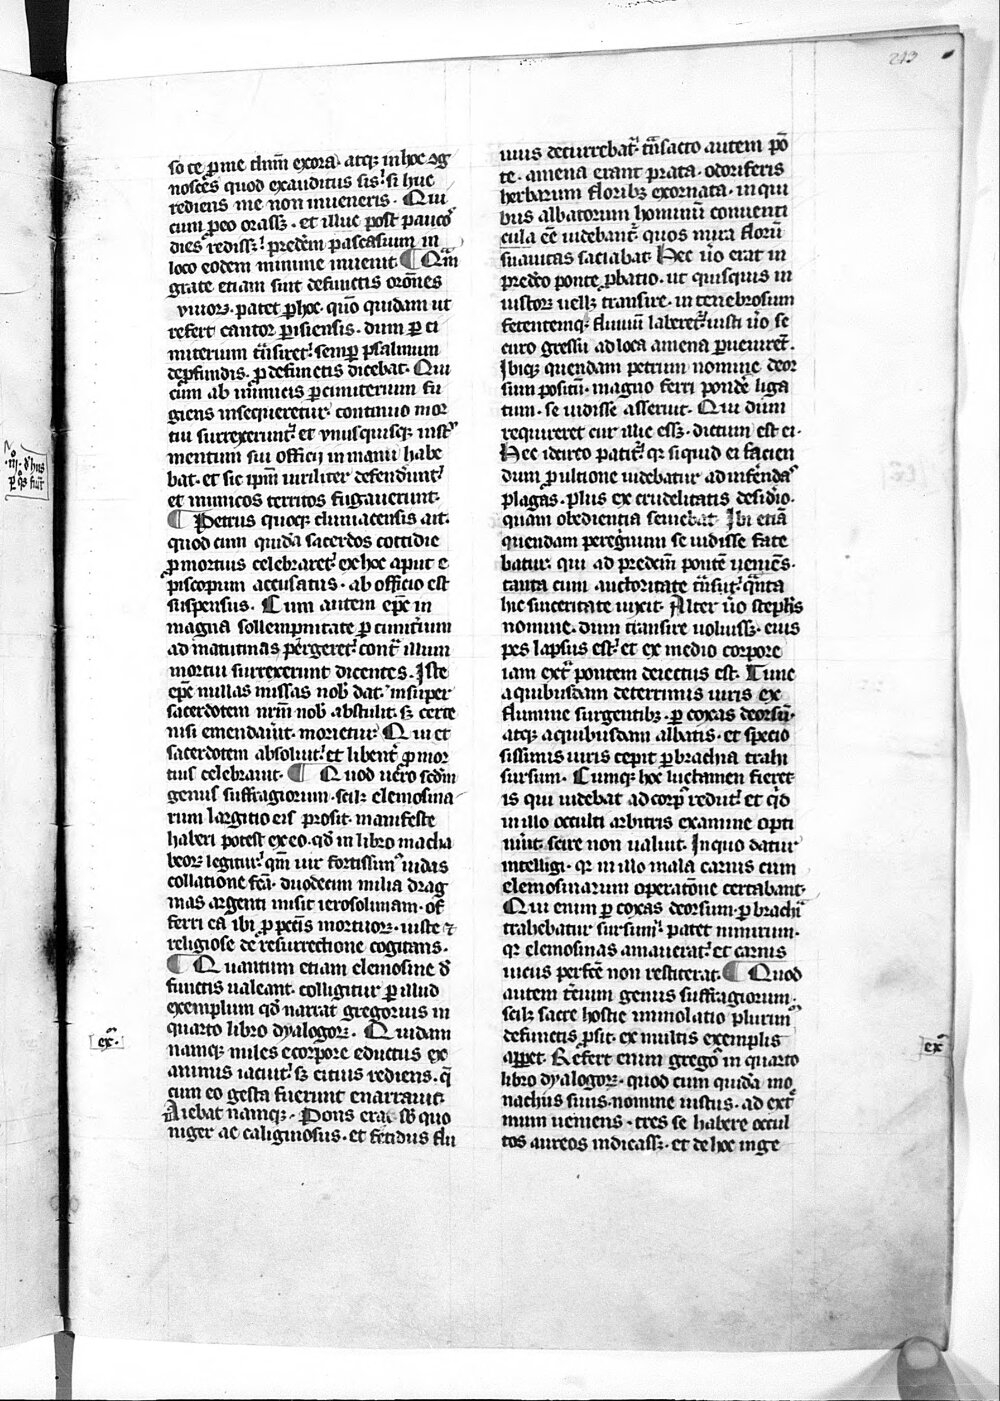 213
so te ꝑ me dn̄m exora. atqꝫ in hoc cog
nosces quod exauditus sis. si huc
rediens me non inueneris. Qui
cum ꝓ eo orassꝫ. et illuc post paucos
dies redissꝫ. predc̄m pascasium in
loco eodem minime inuenit. ¶ Quam
grate etiam sint defunctis orōnes
viuoꝝ. patet ꝑ hoc. quō quidam ut
refert cantor ꝑisiensis. dum ꝑ ci
miterium tn̄siret. semꝑ psalmum
de ꝓfundis. ꝓ defunctis dicebat. Qui
cum ab inimicis ꝑ cimiterium fu
giens insequeretur. continuo mor
tui surrexerunt. et vnusquisqꝫ instrumentum
sui officij in manu habe
bat. et sic ip̄m uiriliter defenderunt.
et inimicos territos fugauerunt.
¶ Petrus quoqꝫ cluniacensis ait.
quod cum quidā sacerdos cottidie
ꝓ mortuis celebraret. ex hoc aput e
piscopum accusatus. ab officio est
suspensus. Cum autem epc̄ in
magna sollempnitate ꝑ cimiterium
ad matutinas pergeret. contra illum
mortui surrexerunt dicentes. Iste
epc̄ nullas missas nob̄ dat. insuper
sacerdotem nr̄m nob̄ abstulit. sꝫ certe
nisi emendauerit. morietur. Qui et
sacerdotem absoluit. et libenter ꝓ mor
tuis celebrauit. ¶ Quod uero sedm
genus suffragiorum. scilꝫ elemosina
rum largitio eis prosit. manifeste
haberi potest ex eo. qd̄ in libro macha
beoꝝ legitur. qm̄ uir fortissimus iudas
collatione fcā. duodecim milia drag
mas argenti misit ierosolimam. of
ferri ea ibi ꝓ pctīs mortuoꝝ. iuste ⁊
religiose de resurrectione cogitans.
¶ Quantum etiam elemosine de
functis ualeant. colligitur ꝑ illud
exemplum qd̄ narrat gregorius in
quarto libro dyalogoꝝ. Quidam
namqꝫ miles e corpore eductus ex
animis iacuit. sꝫ citius rediens. q̄
cum eo gesta fuerunt enarrauit.
Aiebat namqꝫ. Pons erat sub quo
niger ac caliginosus. et fetidus flu
uius decurrebat. tn̄sacto autem pō
te. amena erant prata. odoriferis
herbarum floribꝫ exornata. in qui
bus albatorum hominū conuenti
cula ēe uidebant. quos mira florū
suauitas saciabat. Hec uō erat in
predc̄o ponte ꝓbatio. ut quisquis in
iustoꝝ uellꝫ transire. in tenebrosum
fetentemqꝫ fluuiū laberet. iusti uō se
curo gressu ad loca amena ꝑuenirēt.
Ibiqꝫ quendam petrum nomine deor
sum positū. magno ferri pondere liga
tum. se uidisse asseruit. Qui dum
requireret cur illic essꝫ. dictum est ei.
Hec idcirco patitur. qr siquid ei facien
dum ꝓ ultione uidebatur ad inferendas
plagas. plus ex crudelitatis desiderio.
quam obedientia seruiebat. Ibi etiā
quendam peregrinum se uidisse fate
batur. qui ad predc̄m pontē ueniēs.
tanta cum auctoritate tn̄siuit. quanta
hic sinceritate uixit. Alter uō stephs̄
nomine. dum transire uoluissꝫ. eius
pes lapsus est. et ex medio corpore
iam extra pontem deiectus est. Tunc
a quibusdam deterrimis uiris ex
flumine surgentibꝫ. ꝑ coxas deorsū.
atqꝫ a quibusdam albatis. et specio
sissimis uiris cepit ꝑ brachia trahi
sursum. Cumqꝫ hoc luctamen fieret
is qui uidebat ad corpus rediit. et qd̄
in illo occulti arbitris examine opti
nuit. scire non ualuit. In quo datur
intelligi. qr in illo mala carnis cum
elemosinarum operatione certabant.
Qui enim ꝑ coxas deorsum. ꝑ brachia
trahebatur sursum. patet nimirum.
qr elemosinas amauerat. et carnis
uicus perfcē non restiterat. ¶ Quod
autem tercium genus suffragiorum.
scilꝫ sacre hostie immolatio plurimum
defunctis ꝓsit. ex multis exemplis
apparet. Refert enim gregorius in quarto
libro dyalogoꝝ. quod cum quidā mo
nachus suus nomine iustus. ad extre
mum ueniens. tres se habere occul
tos aureos indicassꝫ. et de hoc inge
ex.
ex